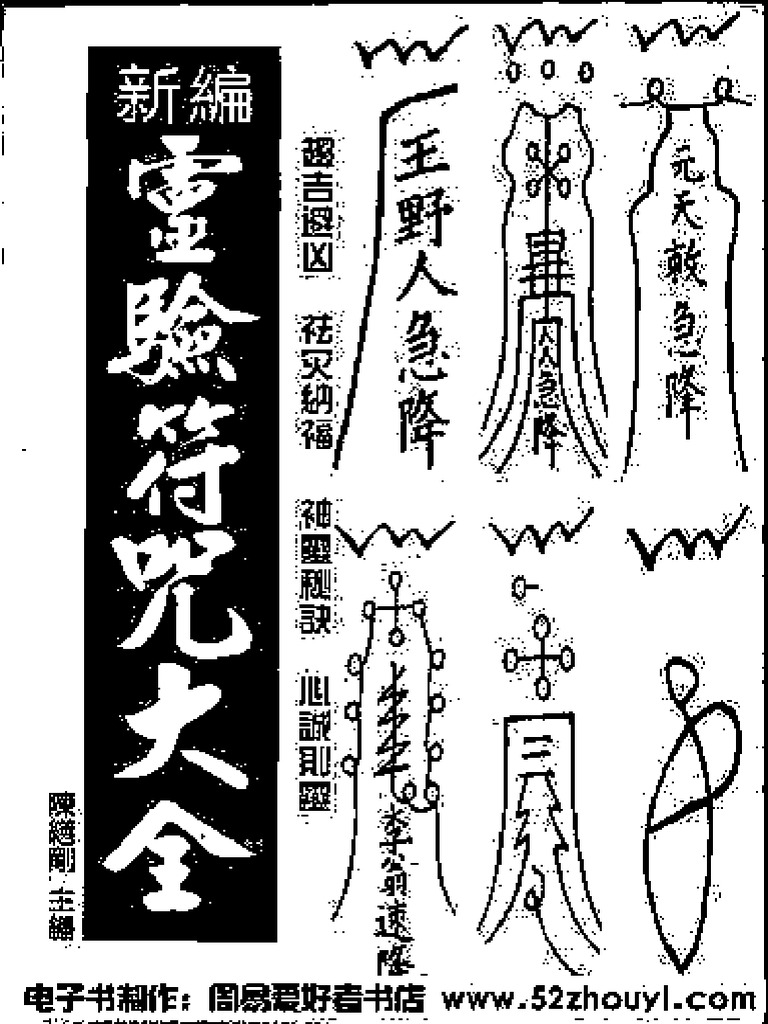 新編
靈驗符咒大全
趨吉避凶 祛灾納福 神靈秘訣 心誠則靈
王野人急降
人人急降
元天敕急降
李翁速降
三
主編
电子书制作：周易爱好者书店 www.52zhouyl.com